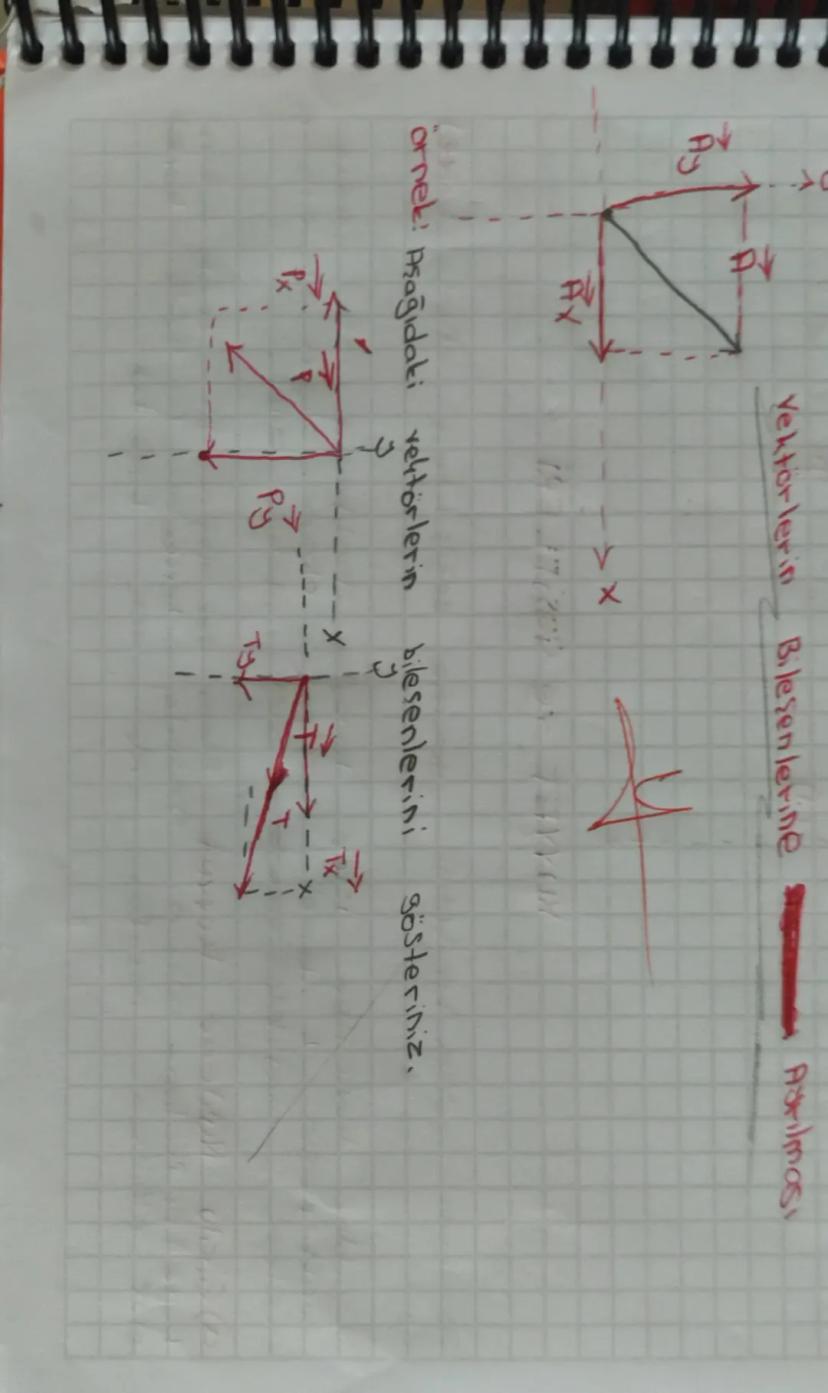 Vektörlerin Bileşenlerine Ayrılması
y
Ay
A
Ax
x
Örnek: Aşağıdaki vektörlerin bileşenlerini gösteriniz.
y
Px
P
x
Py
y
T
Tx
x
Ty
T